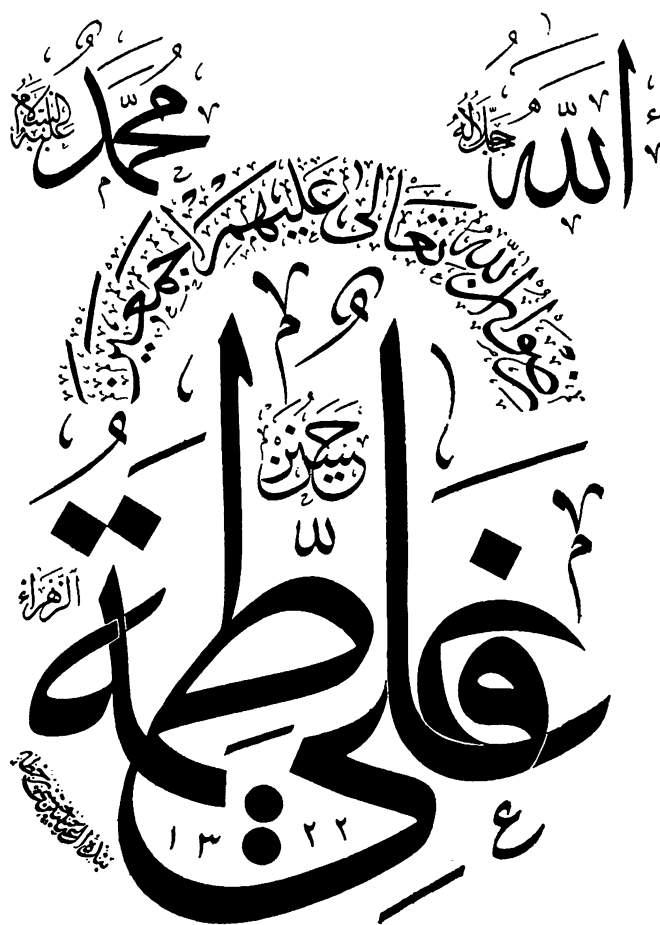 الله جل جلاله
محمد عليه السلام
رضوان الله تعالى عليهم اجمعين
حسن حسين
فاطمة الزهراء
علي
١٣٢٢